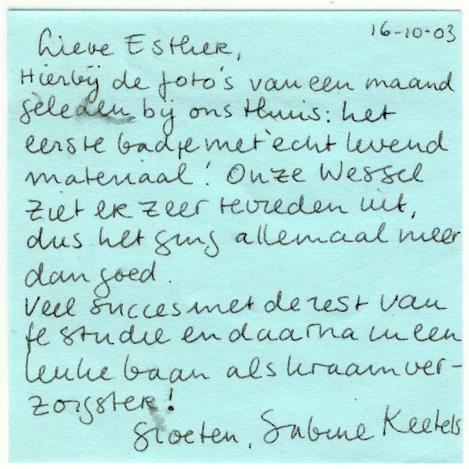 16-10-03
Lieve Esther,
Hierbij de foto's van een maand
geleden bij ons thuis: het
eerste badje met echt levend
materiaal! Onze Wessel
ziet er zeer tevreden uit,
dus het ging allemaal meer
dan goed.
Veel succes met de rest van
je studie en daarna in een
leuke baan als kraamver-
zorgster!
Groeten, Sabine Keetels